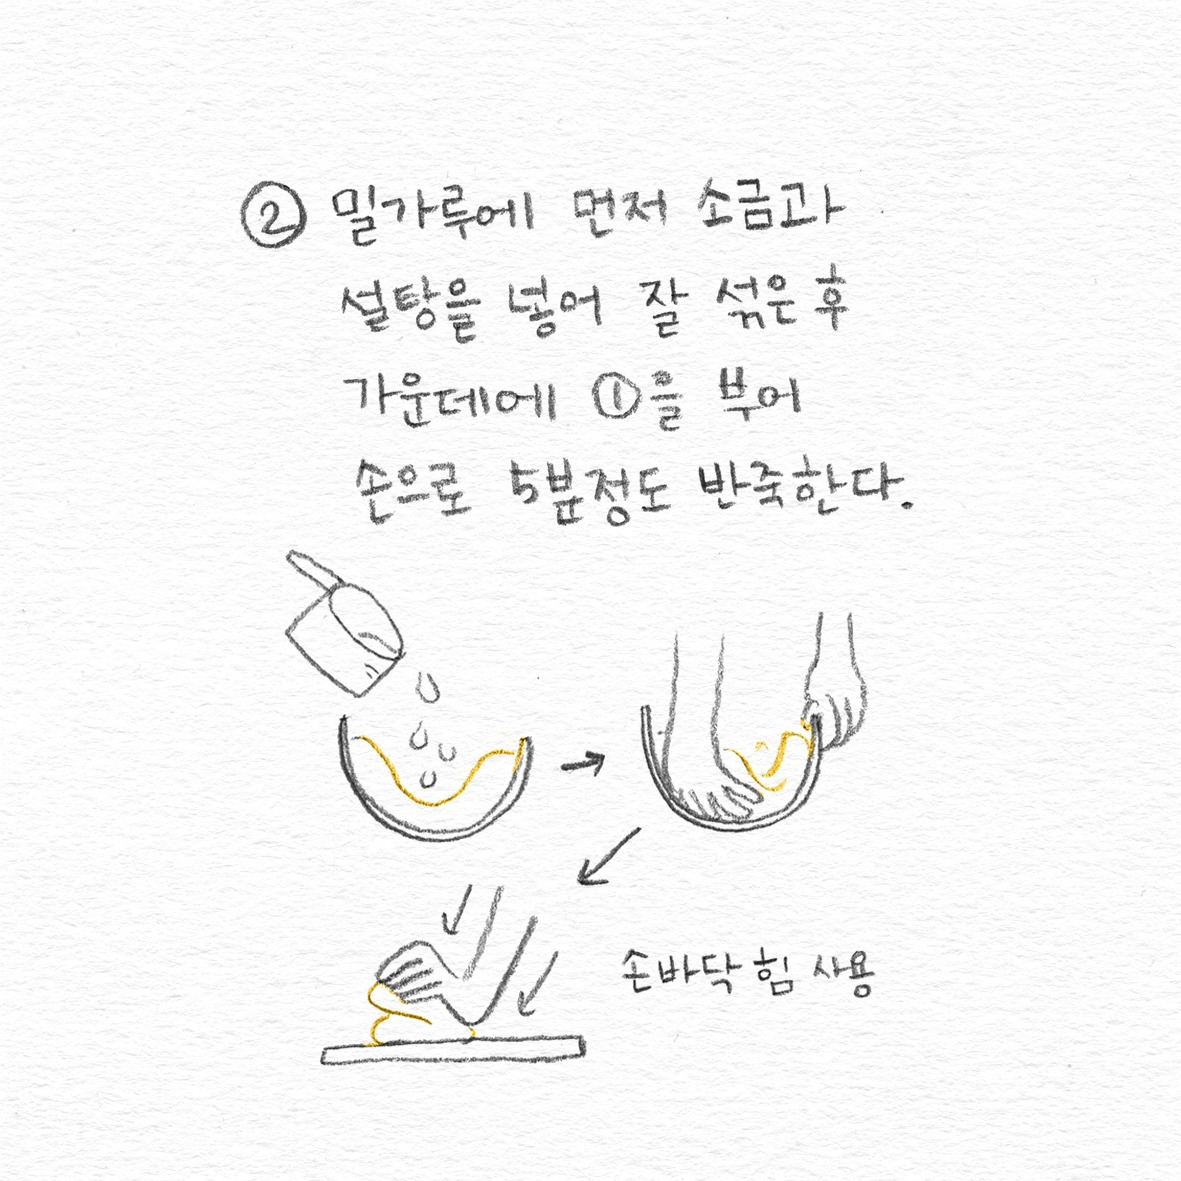 ② 밀가루에 먼저 소금과
설탕을 넣어 잘 섞은 후
가운데에 ①을 부어
손으로 5분정도 반죽한다.
손바닥 힘 사용